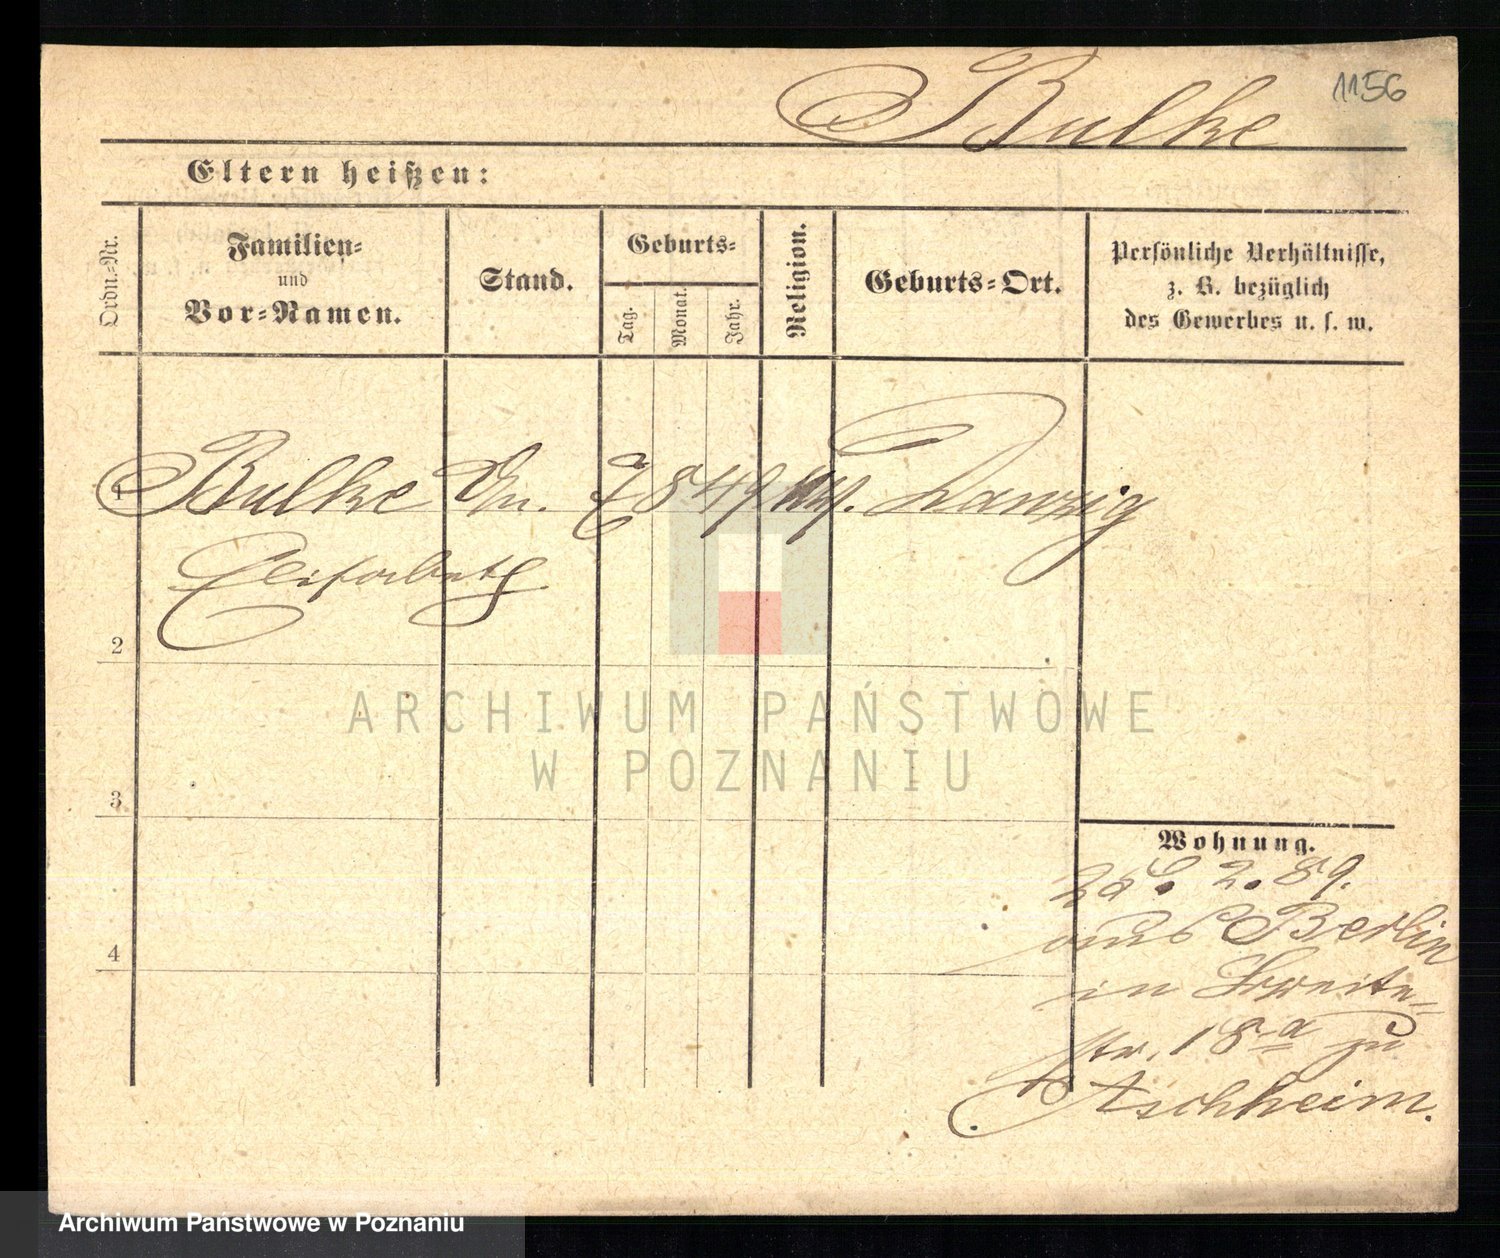 Bulke 1156
Eltern heißen:
Ordn.-Nr.
Familien-
und
Vor-Namen.
Stand.
Geburts-
Tag.
Monat.
Jahr.
Religion.
Geburts-Ort.
Persönliche Verhältnisse,
z. B. bezüglich
des Gewerbes u. s. w.
1 Bulke Danzig
Elisabeth
2
3
4
ARCHIWUM PAŃSTWOWE
W POZNANIU
Wohnung.
2. 89.
aus Berlin
in Breite-
str. 18a zu
Aschheim.
Archiwum Państwowe w Poznaniu